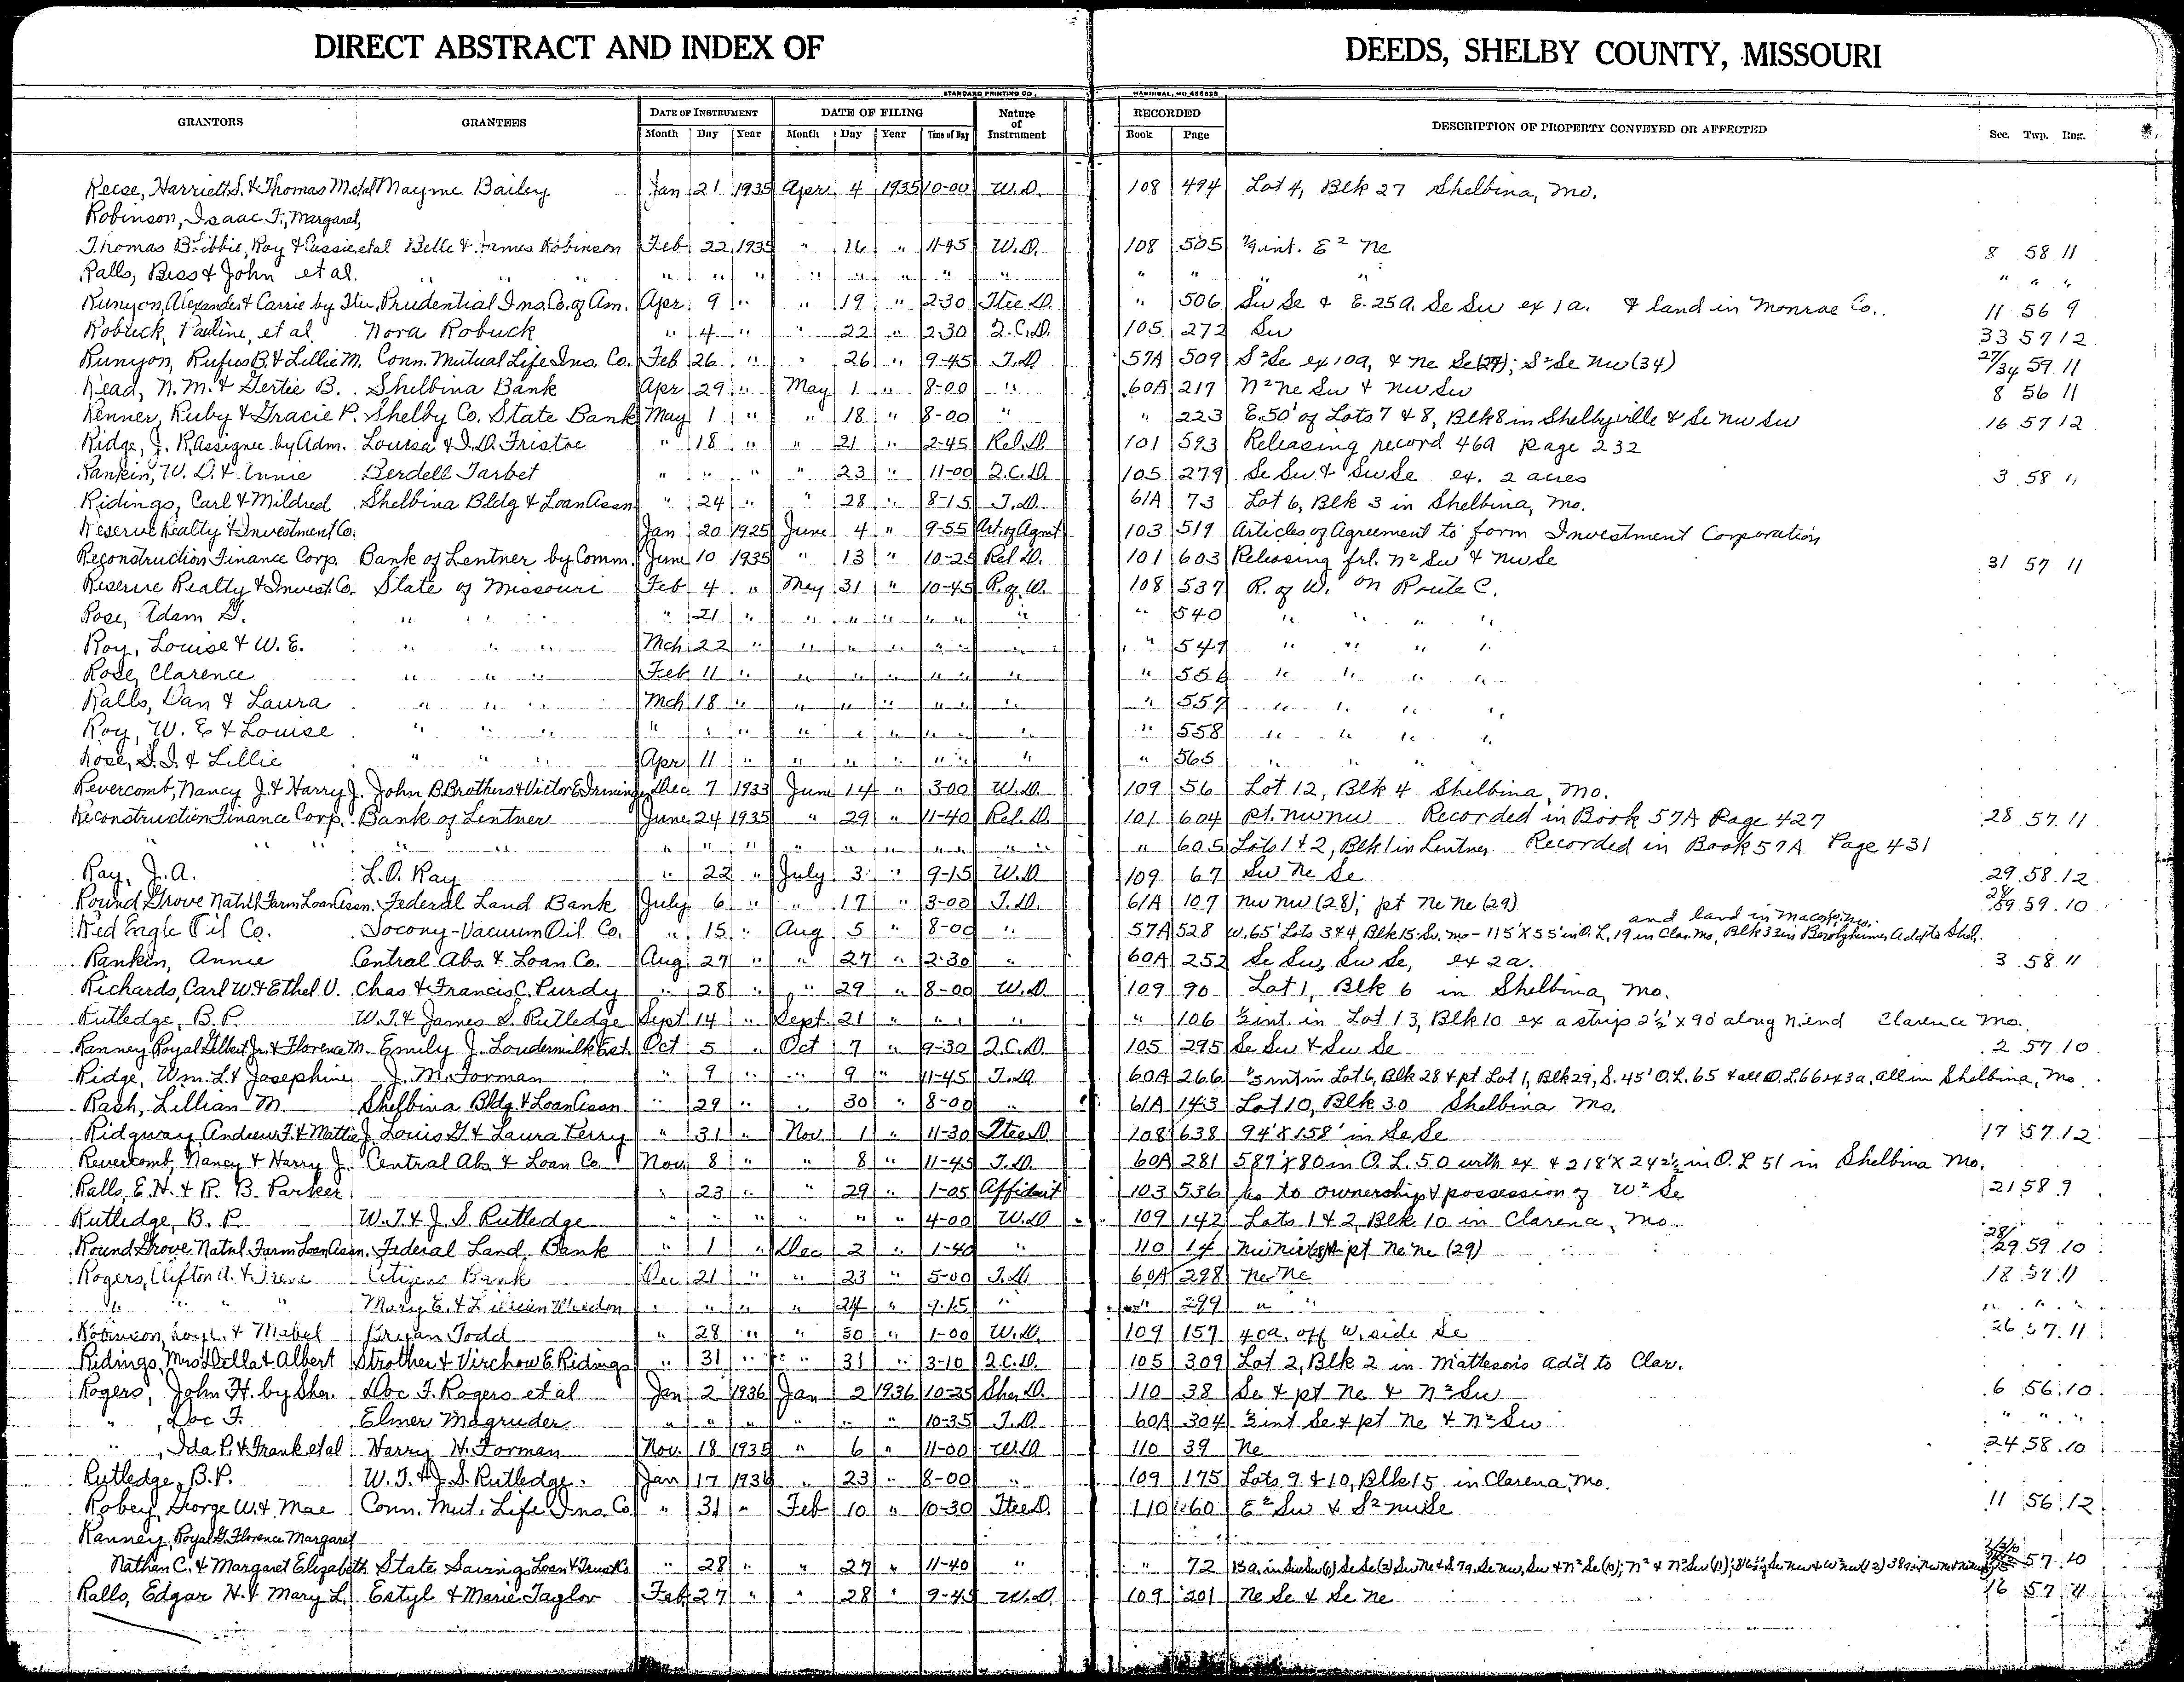 DIRECT ABSTRACT AND INDEX OF DEEDS, SHELBY COUNTY, MISSOURI
STANDARD PRINTING CO., HANNIBAL, MO.
GRANTORS GRANTEES DATE OF INSTRUMENT DATE OF FILING Nature of Instrument RECORDED DESCRIPTION OF PROPERTY CONVEYED OR AFFECTED Sec. Twp. Rng.
Month Day Year Month Day Year Time of Day Book Page
Reese, Harriett S. & Thomas M. etal Mayme Bailey Jan 21 1935 Apr. 4 1935 10-00 W.D. 108 494 Lot 4, Blk 27 Shelbina, Mo.
Robinson, Isaac F., Margaret,
Thomas B. Libbie, Roy & Cassie, etal Belle & James Robinson Feb 22 1935 " 16 " 11-45 W.D. 108 505 int. E² Ne 8 58 11
Ralls, Bess & John et al. " " " " " " " " " " " " " " " " " "
Runyon, Alexander & Carrie by Ttee, Prudential Ins. Co. of Am. Apr. 9 " " 19 " 2-30 Ttee D. " 506 Sw Se & E. 25a. Se Sw ex 1a. & land in Monroe Co. 11 56 9
Robuck, Pauline, et al. Nora Robuck " 4 " " 22 " 2-30 Q.C.D. 105 272 Sw 33 57 12
Runyon, Rufus B. & Lillie M. Conn. Mutual Life Ins. Co. Feb 26 " " 26 " 9-45 T.D. 57A 509 S²Se ex 10a, & Ne Se (27); S²Se Nw (34) 27/34 59 11
Read, N. M. & Gertie B. Shelbina Bank Apr 29 " May 1 " 8-00 " 60A 217 N² Ne Sw & Nw Sw 8 56 11
Renner, Ruby & Gracie P. Shelby Co. State Bank May 1 " " 18 " 8-00 " " 223 E. 50' of Lots 7 & 8, Blk 8 in Shelbyville & Se Nw Sw 16 57 12
Ridge, J. R. Assignee by Adm. Louisa & I. D. Fristoe " 18 " " 21 " 2-45 Rel. D. 101 593 Releasing record 46a page 232
Rankin, W. D. & Annie Berdell Tarbet " " " " 23 " 11-00 Q.C.D. 105 279 Se Sw & Sw Se ex. 2 acres 3 58 11
Ridings, Carl & Mildred Shelbina Bldg & Loan Assn " 24 " " 28 " 8-15 T.D. 61A 73 Lot 6, Blk 3 in Shelbina, Mo.
Reserve Realty & Investment Co. Jan 20 1925 June 4 " 9-55 Art. of Agmt 103 519 Articles of Agreement to form Investment Corporation
Reconstruction Finance Corp. Bank of Lentner by Comm. June 10 1935 " 13 " 10-25 Rel D. 101 603 Releasing frl. N² Sw & Nw Se 31 57 11
Reserve Realty & Invest. Co. State of Missouri Feb 4 " May 31 " 10-45 R. of W. 108 537 R. of W. on Route C.
Rose, Adam G. " " " " 21 " " " " " " " 540 " " " "
Roy, Louise & W. E. " " " Mch 22 " " " " " " " 549 " " " "
Rose, Clarence " " " Feb 11 " " " " " " " 556 " " " "
Ralls, Dan & Laura " " " Mch 18 " " " " " " " 557 " " " "
Roy, W. E & Louise " " " " " " " " " " " " 558 " " " "
Rose, S. I. & Lillie " " " Apr 11 " " " " " " " 565 " " " "
Revercomb, Nancy J. & Harry J. John B. Brothers & Victor E. Dec 7 1933 June 14 " 3-00 W.D. 109 56 Lot 12, Blk 4 Shelbina, Mo.
Reconstruction Finance Corp. Bank of Lentner June 24 1935 " 29 " 11-40 Rel. D. 101 604 pt. Nw Nw Recorded in Book 57A Page 427 28 57 11
" " " " " " " " " " " " " 605 Lots 1 & 2, Blk 1 in Lentner Recorded in Book 57A Page 431
Ray, J. A. L. O. Ray " 22 " July 3 " 9-15 W.D 109 67 Sw Ne Se 29 58 12
Round Grove Natnl Farm Loan Assn. Federal Land Bank July 6 " " 17 " 3-00 T.D. 61A 107 Nw Nw (28); pt Ne Ne (29) 28/29 59 10
Red Eagle Oil Co. Socony-Vacuum Oil Co. " 15 " Aug 5 " 8-00 " 57A 528 W. 65' Lots 3 & 4, Blk 15 - 115' X 55' in O.L. 19 in Clar. Mo, Blk 33 in Add to Shel. and land in Macon Co.
Rankin, Annie Central Abs. & Loan Co. Aug 27 " " 27 " 2-30 " 60A 252 Se Sw, Sw Se, ex 2a. 3 58 11
Richards, Carl W. & Ethel V. Chas & Francis C. Purdy " 28 " " 29 " 8-00 W.D. 109 90 Lot 1, Blk 6 in Shelbina, Mo.
Rutledge, B. P. W. T. & James S. Rutledge Sept 14 " Sept. 21 " " " " 106 int. in Lot 13, Blk 10 ex a strip 2½' x 90' along N. end Clarence Mo.
Ranney Royal Gilbert Jr. & Florence M. Emily J. Loudermilk Est. Oct 5 " Oct 7 " 9-30 Q.C.D. 105 295 Se Sw & Sw Se 2 57 10
Ridge, Wm. L. & Josephine J. M. Forman " 9 " " 9 " 11-45 T.D. 60A 266 int in Lot 6, Blk 28 & pt Lot 1, Blk 29, S. 45' O.L. 65 & all O.L. 66 ex 3a, all in Shelbina, Mo.
Rash, Lillian M. Shelbina Bldg. & Loan Assn " 29 " " 30 " 8-00 " 61A 143 Lot 10, Blk 30 Shelbina Mo.
Ridgway, Andrew F. & Mattie J. Louis G. & Laura Perry " 31 " Nov. 1 " 11-30 Ttee D 108 638 94' X 158' in Se Se 17 57 12
Revercomb, Nancy & Harry J. Central Abs & Loan Co. Nov 8 " " 8 " 11-45 T.D. 60A 281 589' X 80 in O.L. 50 with ex & 218' X 242½ in O.L 51 in Shelbina Mo.
Ralls, E. H. & R. B. Parker " 23 " " 29 " 1-05 Affidavit 103 536 As to ownership & possession of W² Se 21 58 9
Rutledge, B. P. W. T. & J. S. Rutledge " " " " " " 4-00 W.D 109 142 Lots 1 & 2, Blk. 10 in Clarence, Mo.
Round Grove Natnl Farm Loan Assn. Federal Land Bank " 1 " Dec 2 " 1-40 " 110 14 Nw Nw (28) pt Ne Ne (29) 28/29 59 10
Rogers, Clifton A. & Irene Citizens Bank Dec 21 " " 23 " 5-00 T.D. 60A 298 Ne Ne 18 57 11
" " " Mary E. & Lillian " " " " 24 " 9-15 " " 299 " " " " "
Robinson, Loyl. & Mabel Bryan Todd " 28 " " 30 " 1-00 W.D. 109 157 40a. off W. side Se 26 57 11
Ridings, Mrs Della & Albert Strother & Virchow E. Ridings " 31 " " 31 " 3-10 Q.C.D. 105 309 Lot 2, Blk 2 in Matteson's Add to Clar.
Rogers, John H. by Sher. Doc F. Rogers et al Jan 2 1936 Jan 2 1936 10-25 Sher D. 110 38 Se & pt Ne & N² Sw 6 56 10
" , Doc F. Elmer Magruder " " " " " " 10-35 T.D. 60A 304 int Se & pt Ne & N² Sw " " "
" , Ida P. & Frank etal Harry H. Forman Nov. 18 1935 " 6 " 11-00 W.D 110 39 Ne 24 58 10
Rutledge, B. P. W. T. & J. S. Rutledge Jan 17 1936 " 23 " 8-00 " 109 175 Lots 9 & 10, Blk 15 in Clarence, Mo.
Robey, George W. & Mae Conn. Mut. Life Ins. Co " 31 " Feb 10 " 10-30 Ttee D. 110 60 E² Sw & S² Nw Se 11 56 12
Ranney, Royal G. Florence Margaret
Nathan C. & Margaret Elizabeth State Savings Loan & Trust Co " 28 " " 27 " 11-40 " " 72 57 10
Ralls, Edgar H. & Mary L. Estyl & Marie Taylor Feb 27 " " 28 " 9-45 W.D. 109 201 Ne Se & Se Ne 16 57 11